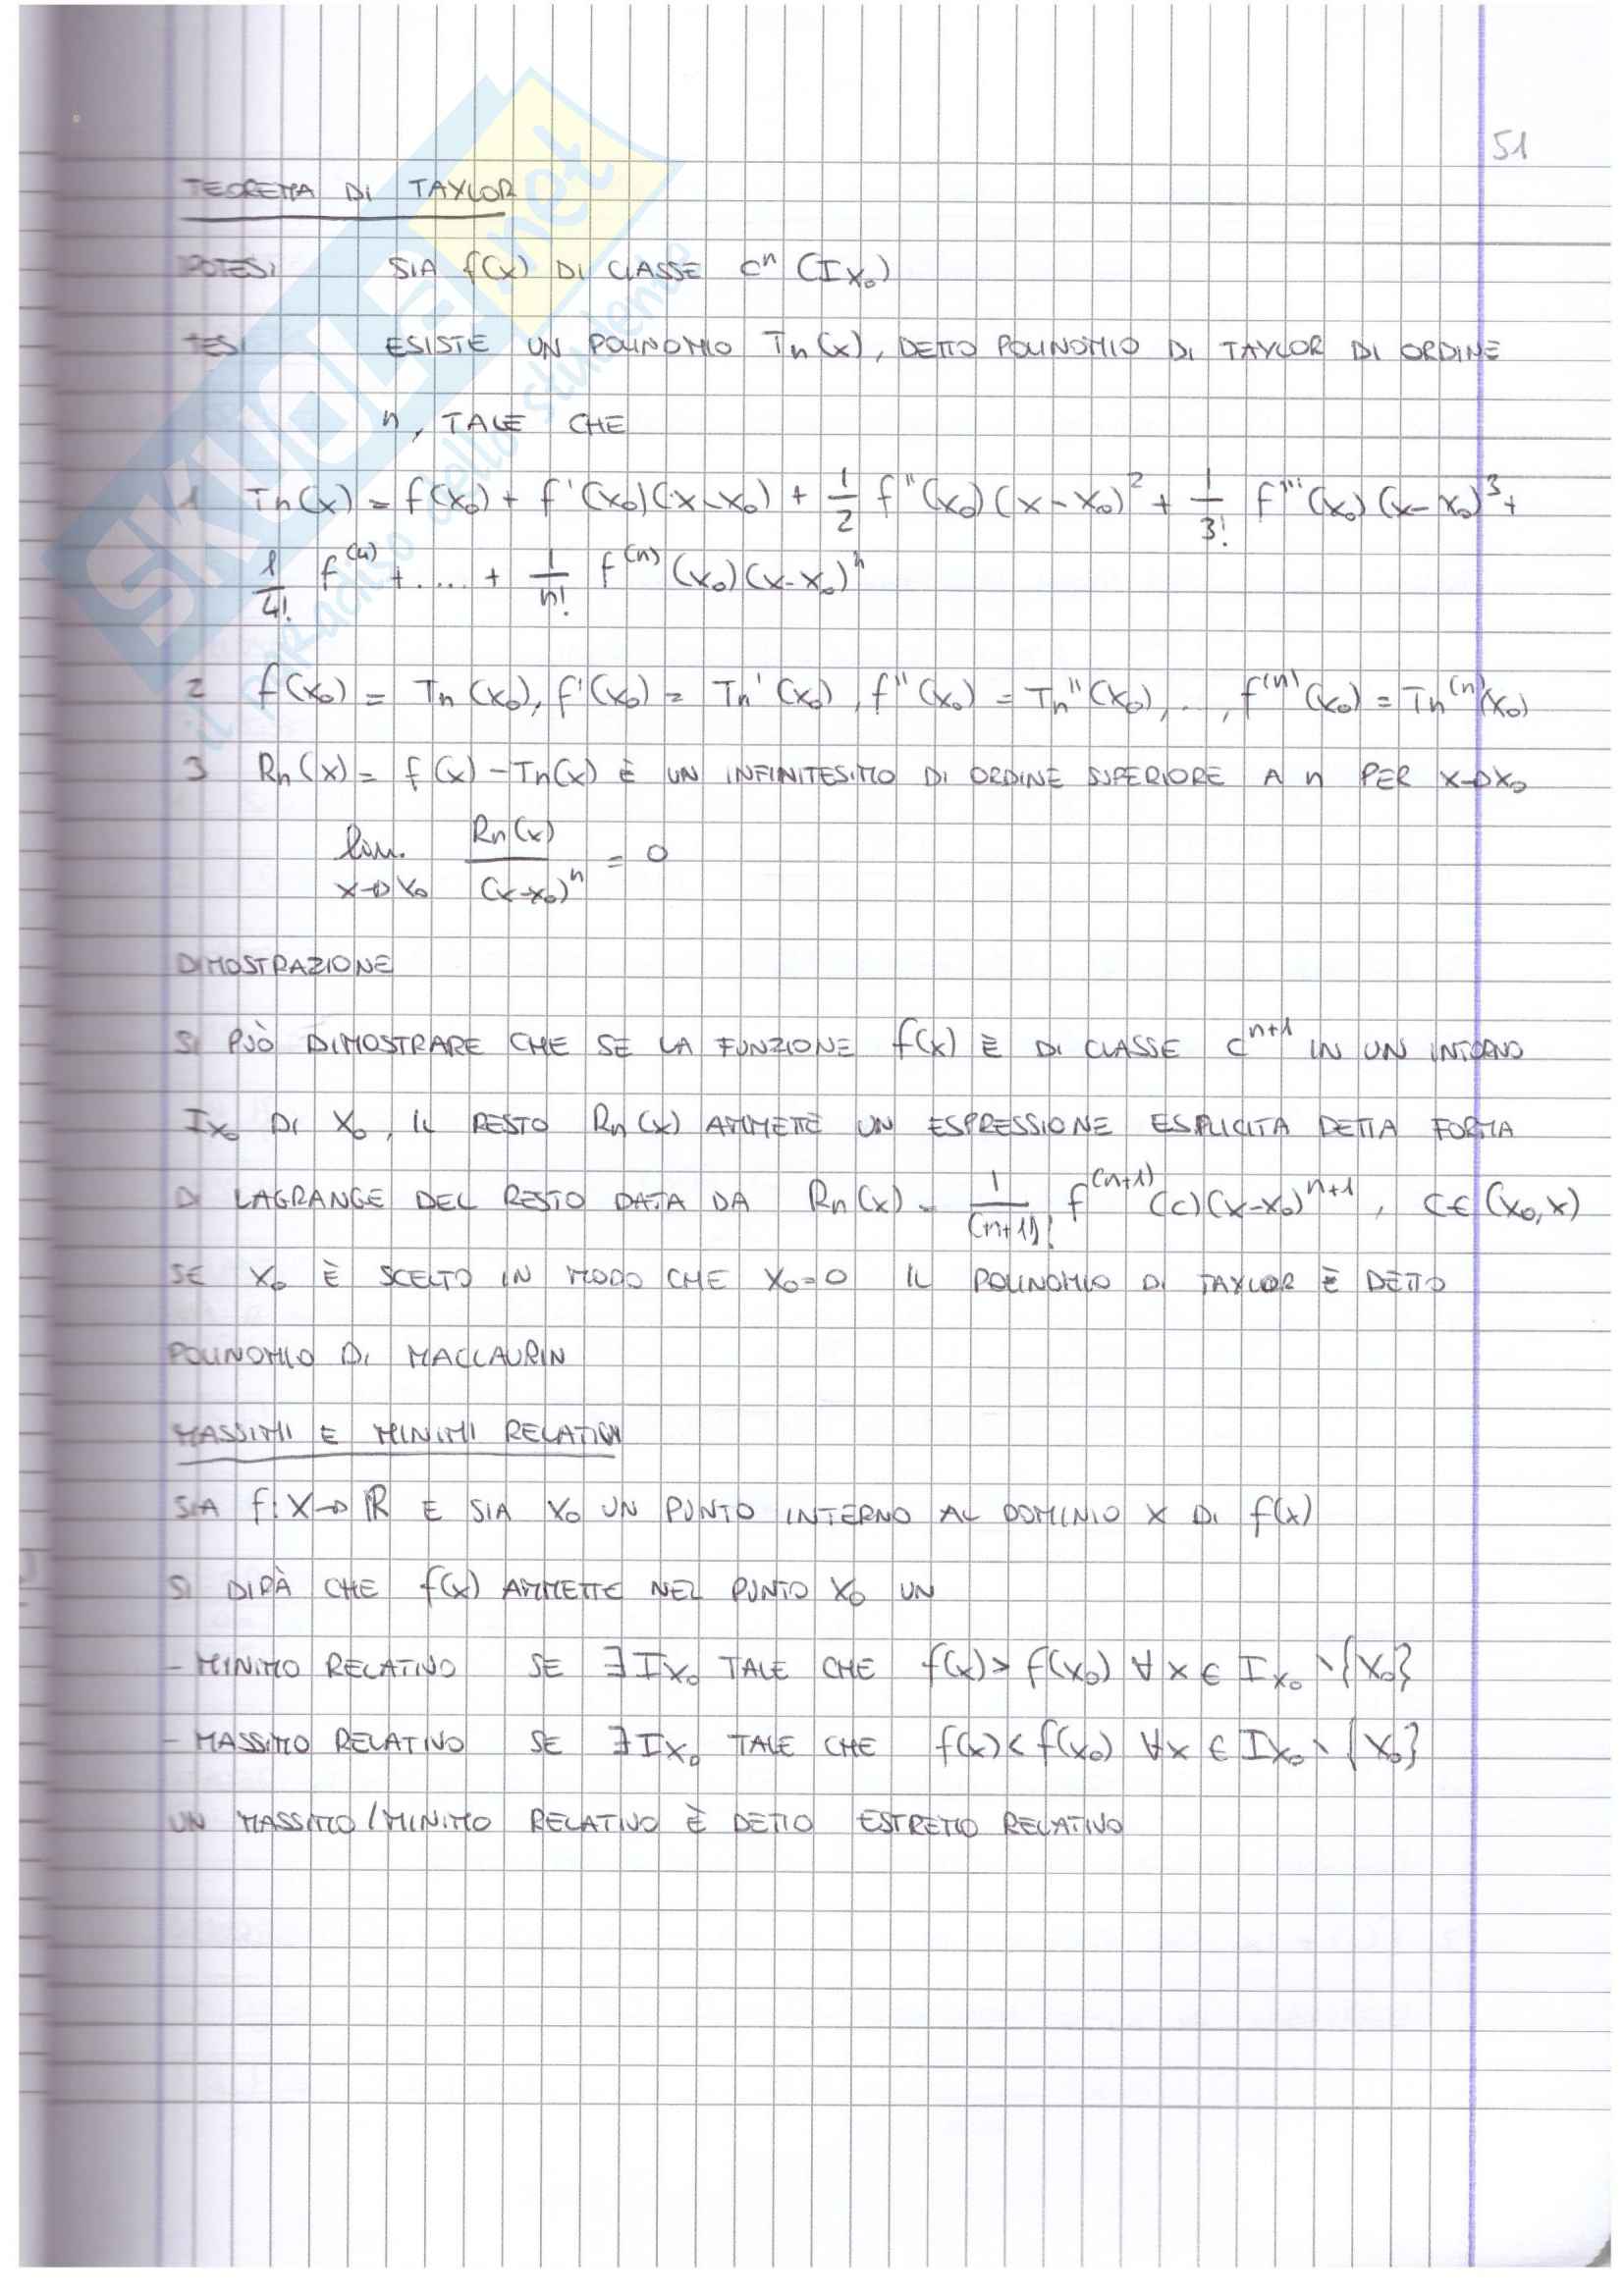 51
TEOREMA DI TAYLOR
IPOTESI SIA f(x) DI CLASSE Cⁿ (Ix₀)
TESI ESISTE UN POLINOMIO Tn(x), DETTO POLINOMIO DI TAYLOR DI ORDINE
n, TALE CHE
1 Tn(x) = f(x₀) + f'(x₀)(x-x₀) + 1/2 f''(x₀)(x-x₀)² + 1/3! f'''(x₀)(x-x₀)³ +
1/4! f⁽⁴⁾ + .... + 1/n! f⁽ⁿ⁾(x₀)(x-x₀)ⁿ
2 f(x₀) = Tn(x₀), f'(x₀) = Tn'(x₀), f''(x₀) = Tn''(x₀), .., f⁽ⁿ⁾(x₀) = Tn⁽ⁿ⁾(x₀)
3 Rn(x) = f(x) - Tn(x) È UN INFINITESIMO DI ORDINE SUPERIORE A n PER x→x₀
lim x→x₀ Rn(x)/(x-x₀)ⁿ = 0
DIMOSTRAZIONE
SI PUÒ DIMOSTRARE CHE SE LA FUNZIONE f(x) È DI CLASSE Cⁿ⁺¹ IN UN INTORNO
Ix₀ DI x₀, IL RESTO Rn(x) AMMETTE UN ESPRESSIONE ESPLICITA DETTA FORMA
DI LAGRANGE DEL RESTO DATA DA Rn(x) = 1/(n+1)! f⁽ⁿ⁺¹⁾(c)(x-x₀)ⁿ⁺¹, c∈(x₀,x)
SE x₀ È SCELTO IN MODO CHE x₀=0 IL POLINOMIO DI TAYLOR È DETTO
POLINOMIO DI MACLAURIN
MASSIMI E MINIMI RELATIVI
SIA f: X→ℝ E SIA x₀ UN PUNTO INTERNO AL DOMINIO X DI f(x)
SI DIRÀ CHE f(x) AMMETTE NEL PUNTO x₀ UN
- MINIMO RELATIVO SE ∃Ix₀ TALE CHE f(x) > f(x₀) ∀x ∈ Ix₀ \ {x₀}
- MASSIMO RELATIVO SE ∃Ix₀ TALE CHE f(x) < f(x₀) ∀x ∈ Ix₀ \ {x₀}
UN MASSIMO/MINIMO RELATIVO È DETTO ESTREMO RELATIVO
SKUOLA.net
il paradiso dello studente